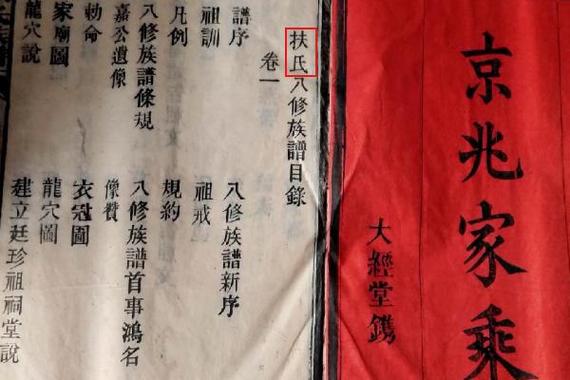 京兆家乘
大經堂鐫
扶氏八修族譜目錄
卷一
譜序
八修族譜新序
祖訓
祖戒
凡例
規約
八修族譜條規
八修族譜首事鴻名
嘉公遺像
像贊
勅命
衣冠圖
家廟圖
龍穴圖
龍穴說
建立廷珍祖祠堂說